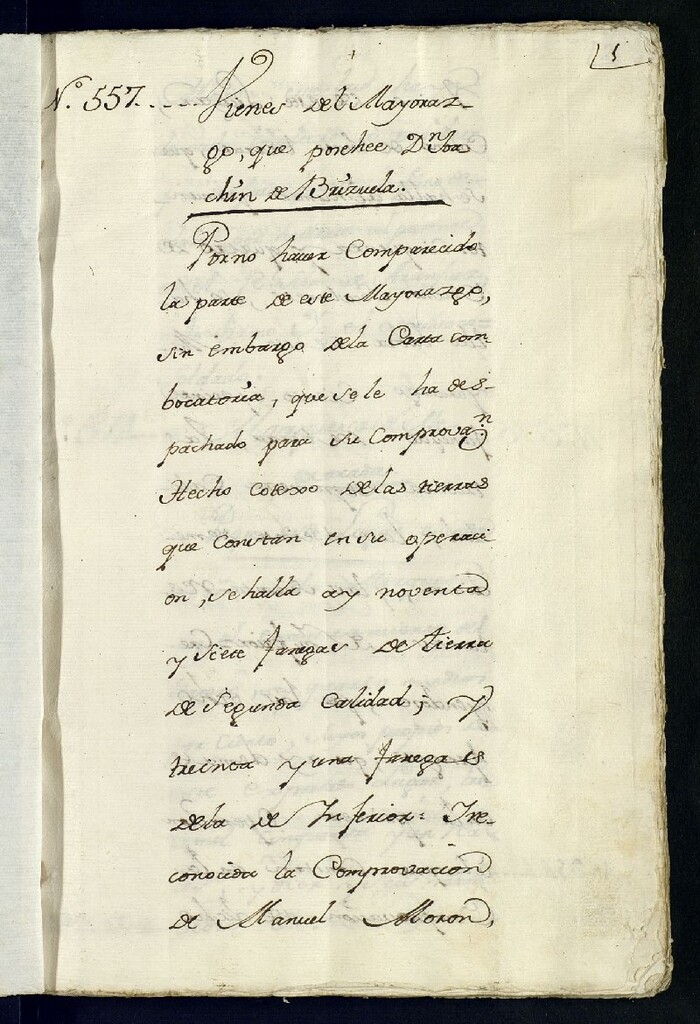 1
N.º 557. Vienes del Mayoraz-
go, que poschee Dⁿ Joa
chin de Brizuela.
Por no haver Comparecido
la parte de este Mayorazgo,
sin embargo dela Carta com-
bocatoria, que se le ha des-
pachado para su Comprovaⁿ.
Hecho cotexo delas tierras
que Constan en su operaci
on, se halla ay noventa
y siete fanegas de tierra
de Segunda Calidad; y
treinta y una fanega es
dela de Inferior: Ire-
conocida la Comprovacion
de Manuel Moron,